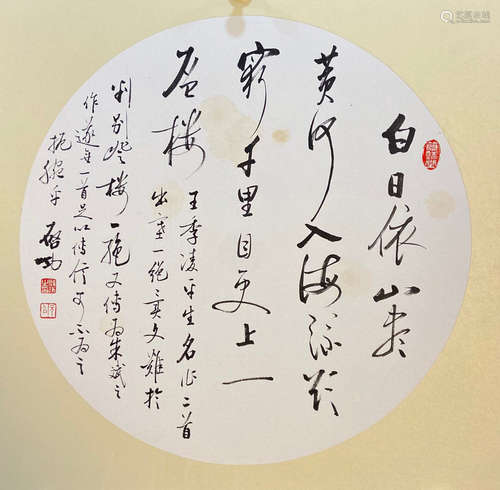 白日依山尽
黄河入海流欲
窮千里目更上一
层楼
王季凌平生名作二首
出塞一绝异文難於
判别登楼一绝又传为朱斌之
作遂无一首足以传信可不为之
扼腕乎 启功